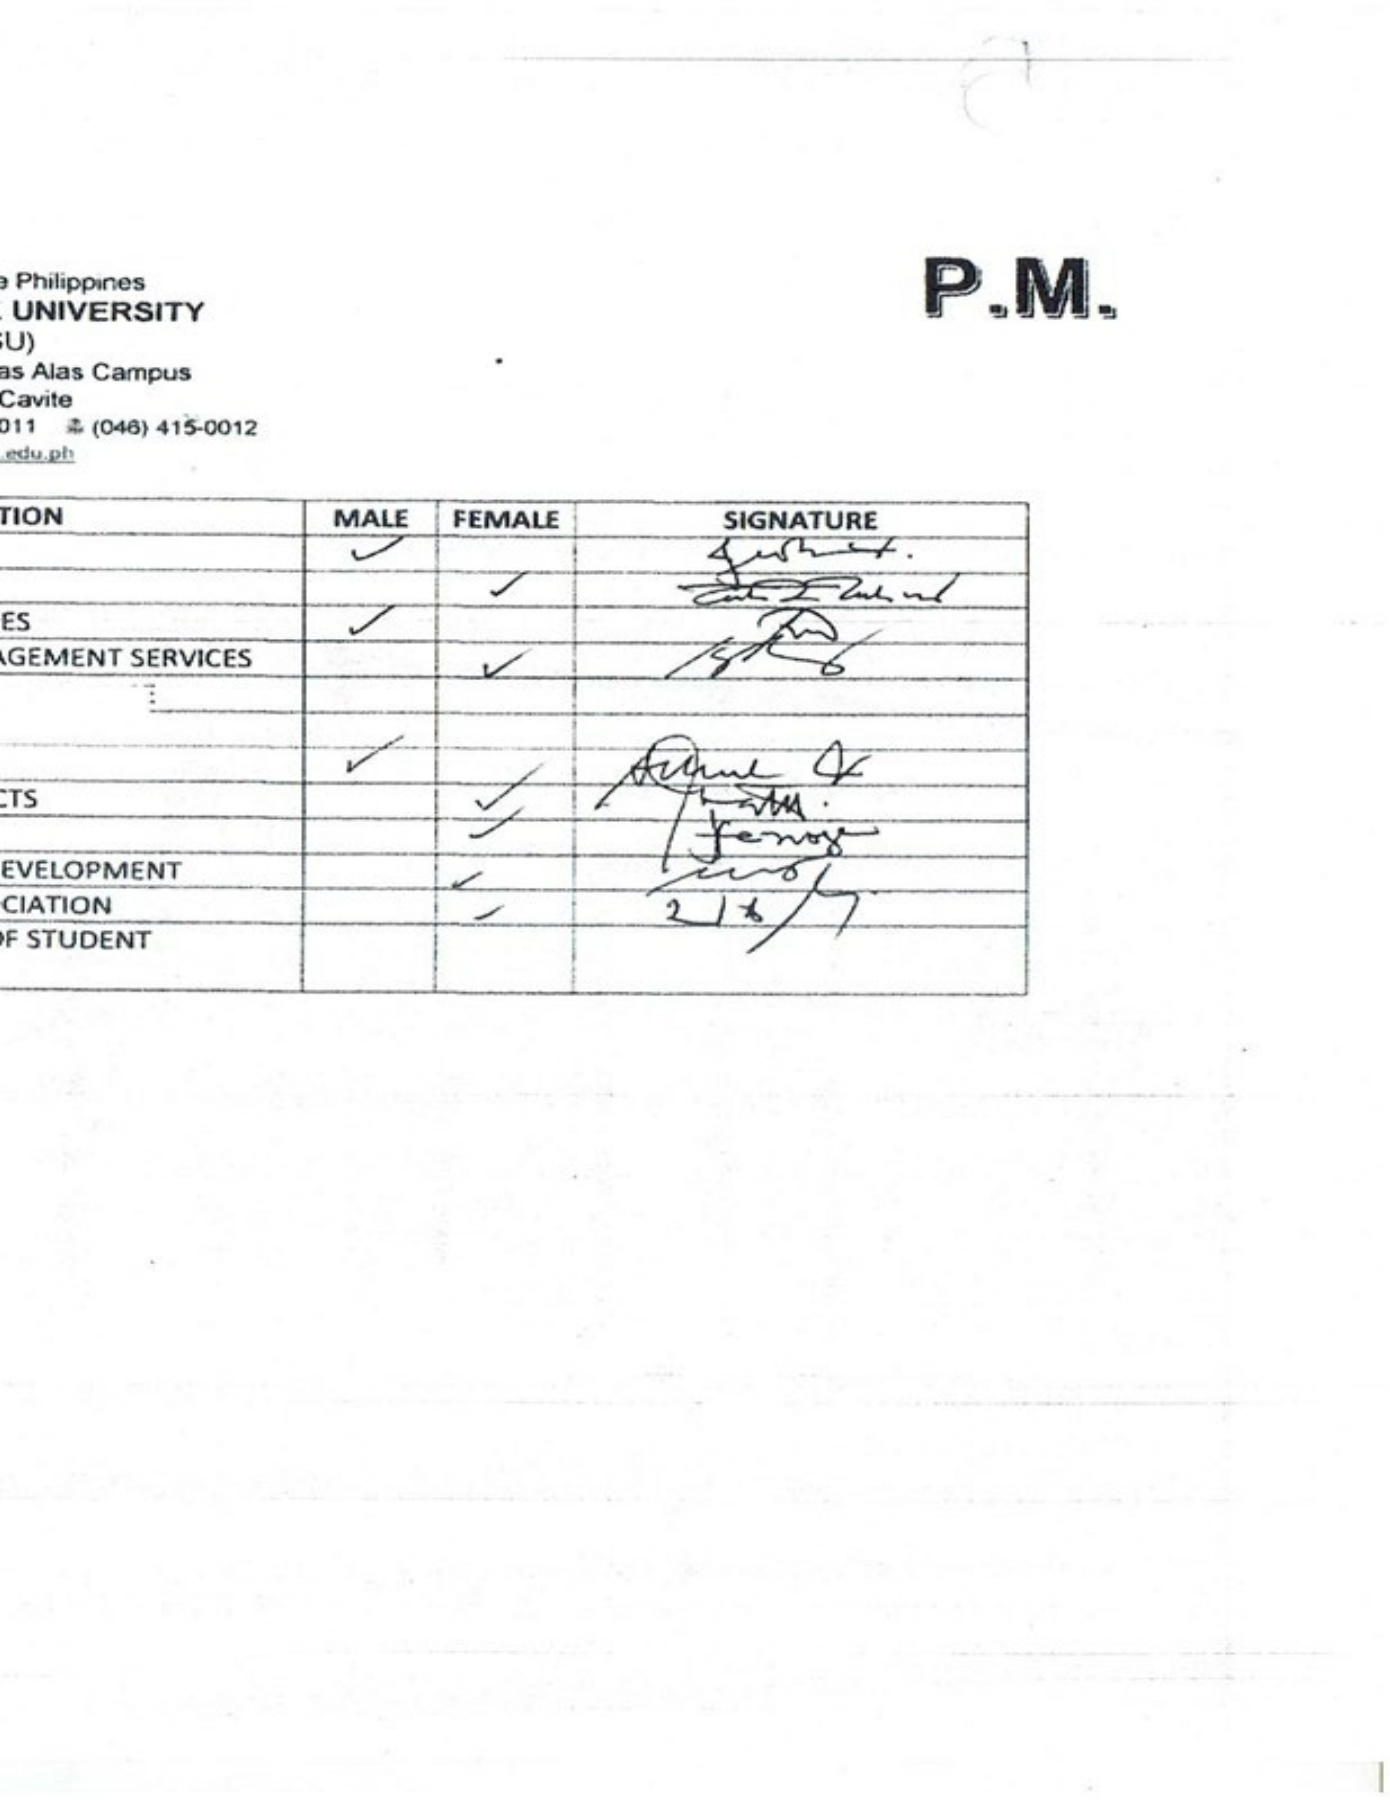 P.M.
e Philippines
UNIVERSITY
SU)
as Alas Campus
Cavite
011 (046) 415-0012
.edu.ph
TION MALE FEMALE SIGNATURE
ES
AGEMENT SERVICES
CTS
EVELOPMENT
CIATION
OF STUDENT